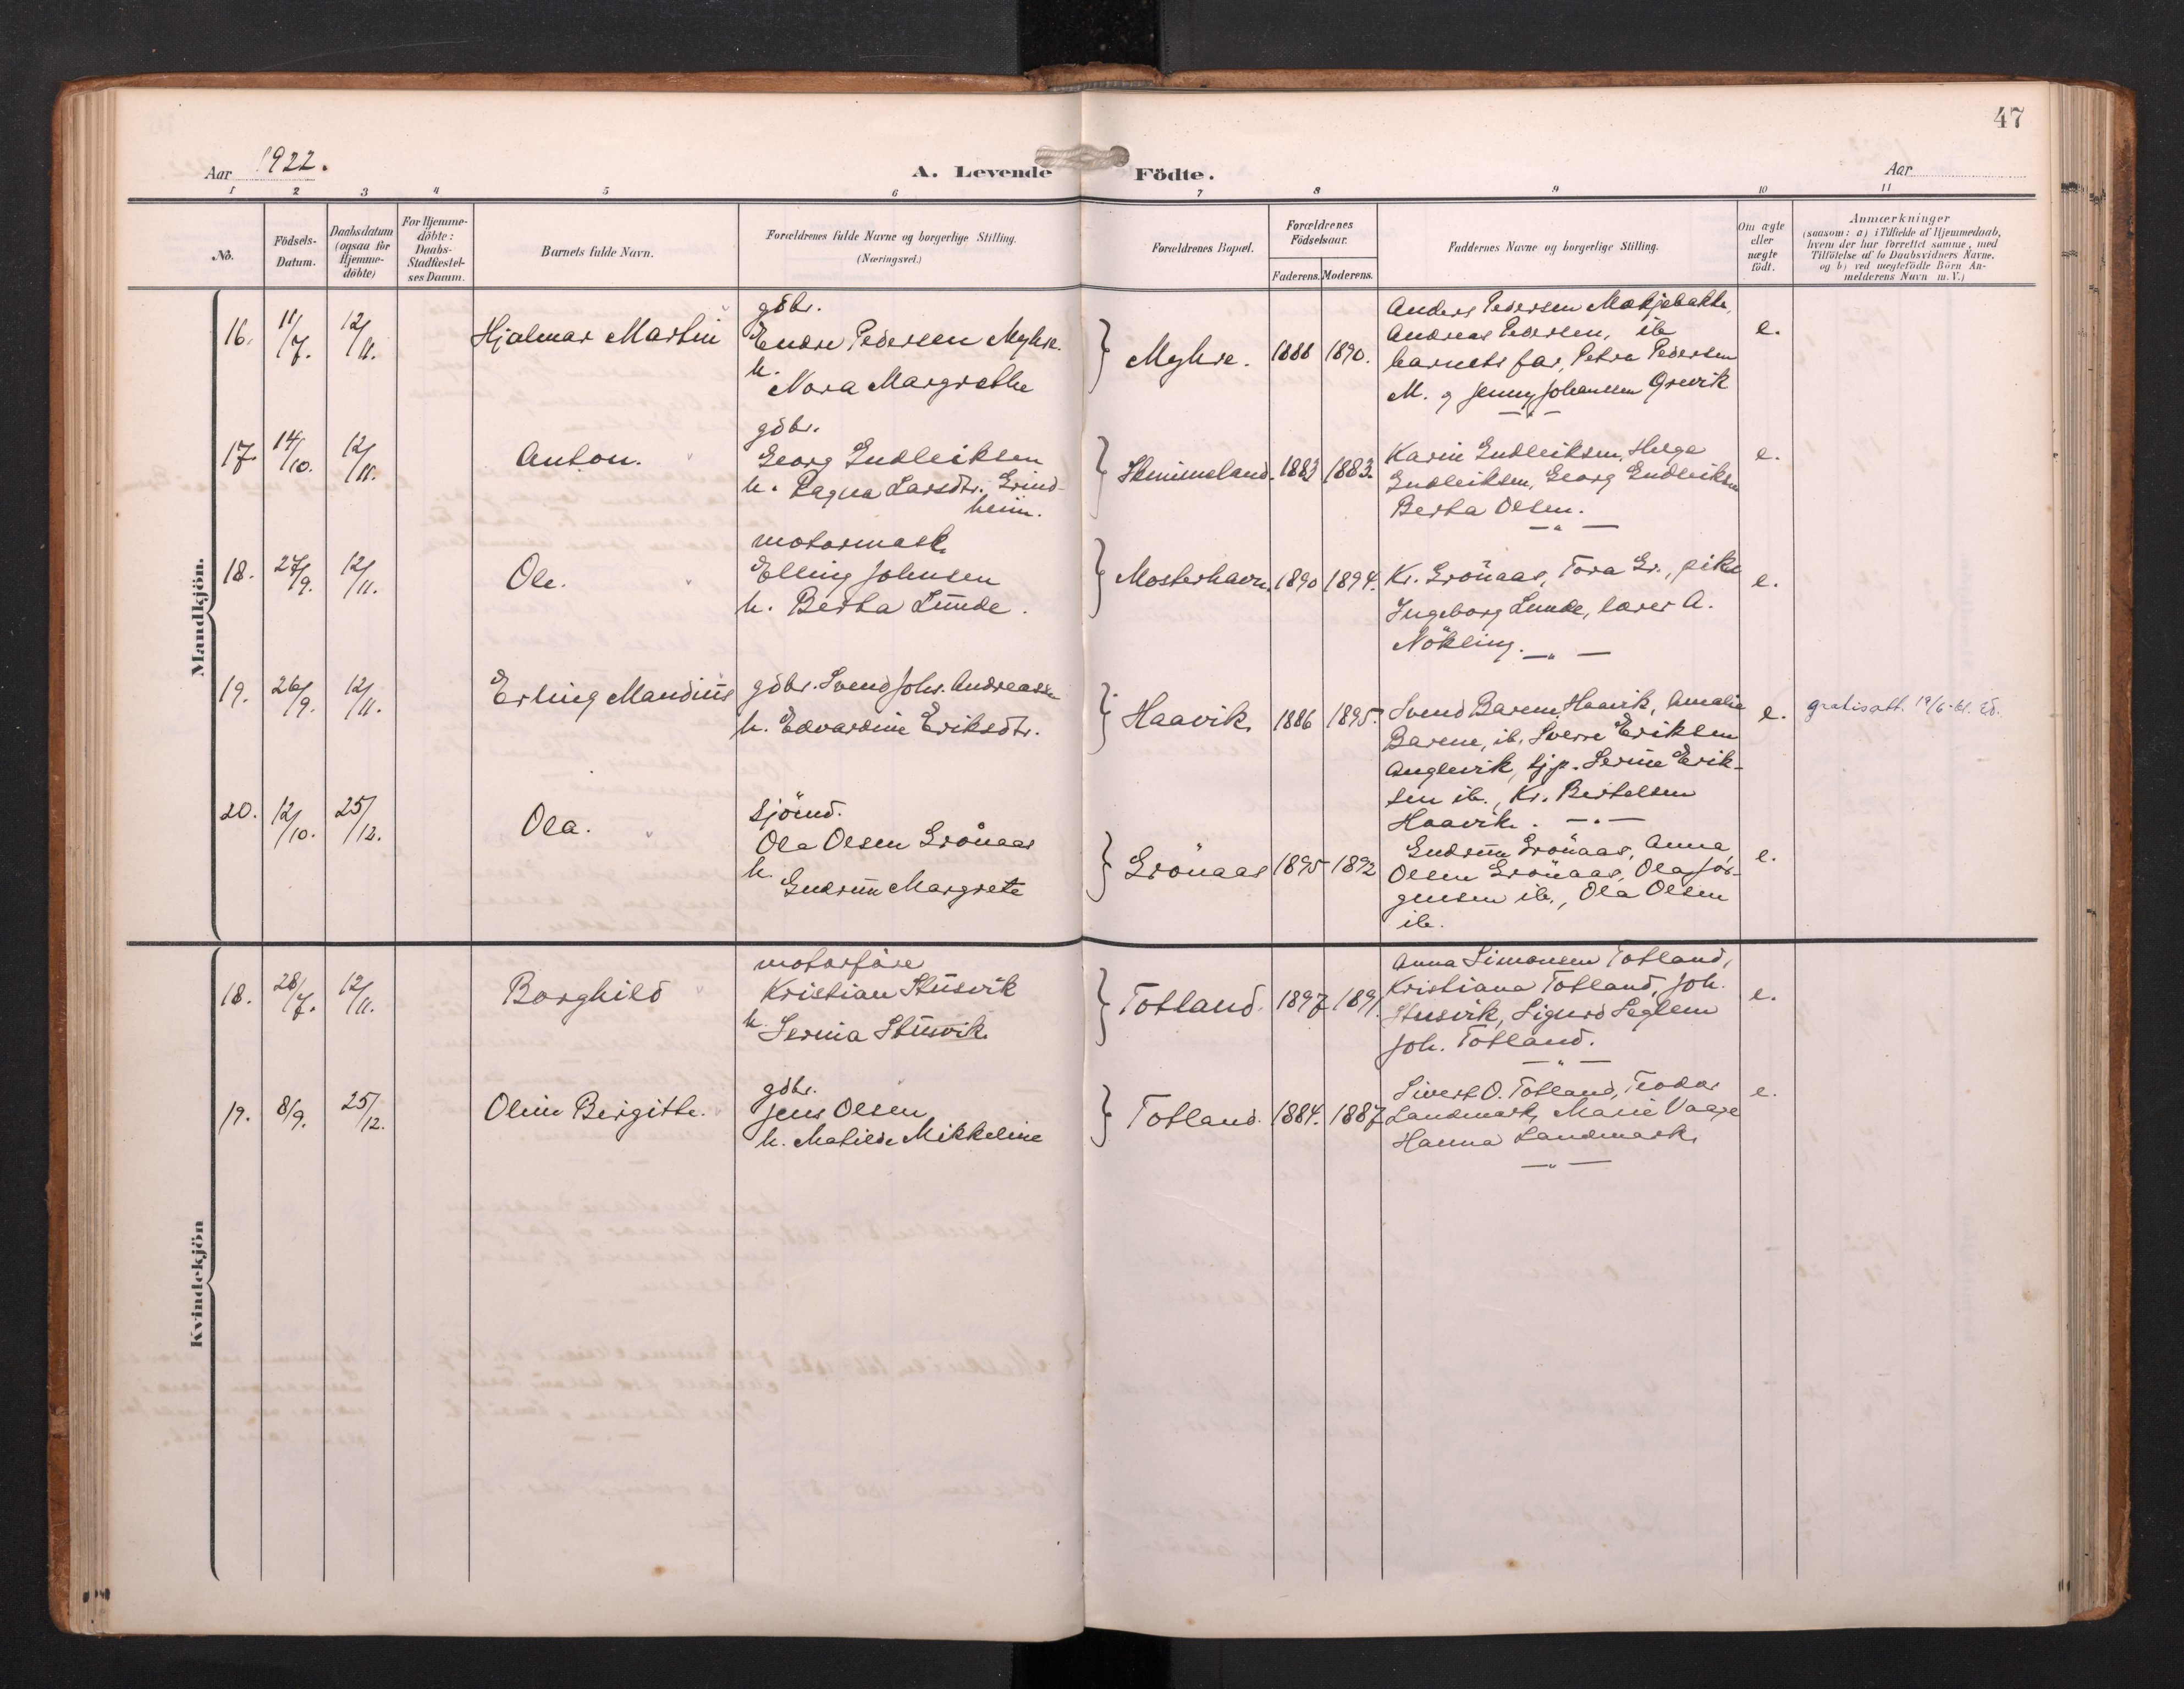 47
Aar 1922.
A. Levende Födte.
Aar
1 2 3 4 5 6 7 8 9 10 11
No.
Födsels-
Datum.
Daabsdatum
(ogsaa for
Hjemme-
döbte)
For Hjemme-
döbte:
Daabs-
Stadfæstel-
ses Datum.
Barnets fulde Navn.
Forældrenes fulde Navne og borgerlige Stilling.
(Næringsvei.)
Forældrenes Bopæl.
Forældrenes
Födselsaar.
Faderens. Moderens.
Faddernes Navne og borgerlige Stilling.
Om ægte
eller
uægte
födt.
Anmærkninger
(saasom: a) i Tilfælde af Hjemmedaab,
hvem der har forrettet samme, med
Tilföielse af to Daabsvidners Navne.
og b) ved uægtefödte Börn An-
melderens Navn m. V.)
Mandkjön.
16. 11/7. 12/11. Hjalmar Martin
gdbr.
Endre Pedersen Myhre.
h.
Nora Margrethe
Myhre. 1888 1890.
Anders Pedersen
Andreas Pedersen, ib
barnets far, Petra Pedersen
M. og Jenny Johannesen
— " —
e.
17. 14/10. 12/11. Anton.
gdbr.
Georg Endleiksen
h. Ragna Larsdtr. Grind-
heim.
1883 1883.
Karin Endleiksen, Helga
Endleiksen, Georg Endleiksen
Berta Olsen.
— " —
e.
18. 27/9. 12/11. Ole.
motormask.
Elling Johnsen
h. Berta Lunde.
Mosterhavn. 1890 1894.
Kr. Grönaas, Tora Gr., pike
Ingeborg Lunde, lærer A.
Nökling.
— " —
e.
19. 26/9. 12/11. Erling Mandius
gdbr. Svend Johs. Andreassen
h. Edvardine Eriksdtr.
Haavik. 1886 1895.
Svend Barene, Haavik, Amalie
Barene, ib. Sverre Eriksen
tjp. Serine Erik-
sen ib., Kr. Bertelsen
Haavik. — " —
e.
gratisatt. 19/6-61.
20. 12/10. 25/12. Ola.
sjömd.
Ola Olsen Grönaas
h.
Gudrun Margrete
Grönaas 1895 1892
Gudrun Grönaas, Anna
Olsen Grönaas, Ola Jör-
gensen ib., Ola Olsen
ib.
e.
Kvindekjön
18. 28/7. 12/11. Borghild
motorförer
Kristian Stusvik
h.
Serina Stusvik
Totland. 1897 1891.
Anna Simonsen Totland,
Kristiana Totland, Joh.
Stusvik, Sigurd Seglem
Joh. Totland.
— " —
e.
19. 8/9. 25/12. Oline Birgitte.
gdbr.
Jens Olsen
h. Matilde Mikkeline
Totland. 1884. 1887
Sivert O. Totland, Teodor
Landmark, Marie Vaage
Hanna Landmark.
— " —
e.